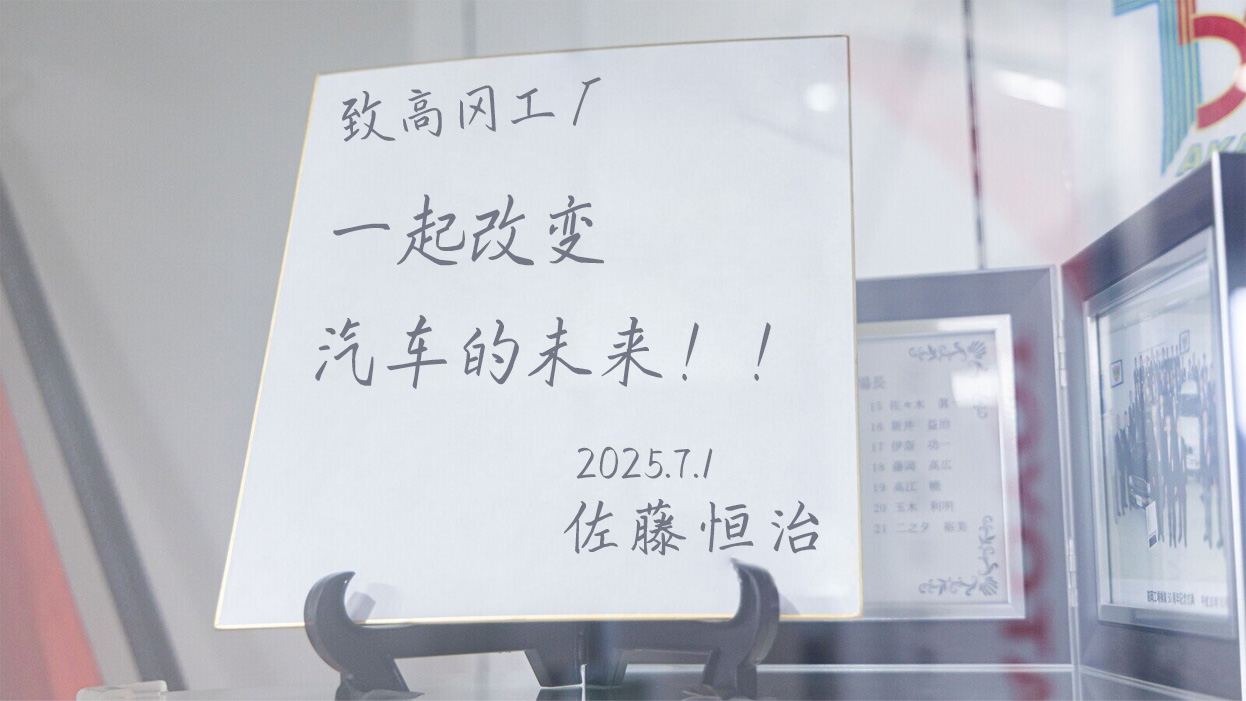 致高冈工厂
一起改变
汽车的未来！！
2025.7.1
佐藤恒治
15 佐々木 眞一
16 新井 益治
17 伊奈 功一
18 藤岡 高広
19 高江 暁
20 玉木 利明
21 二之夕 裕美